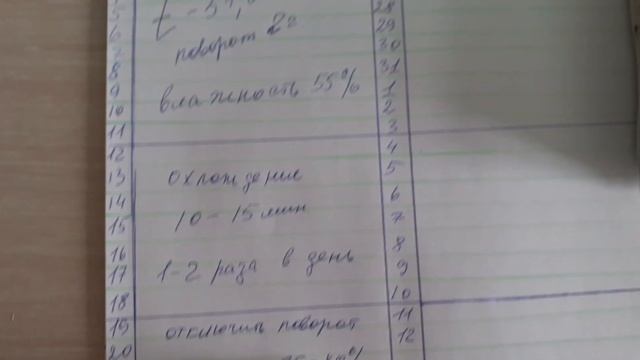 5
6
7
8
9
10
11
12
13
14
15
16
17
18
19
20
поворот 2г
влажность 55%
охлождение
10-15 мин
1-2 раза в день
отключить поворот
28
29
30
31
1
2
3
4
5
6
7
8
9
10
11
12